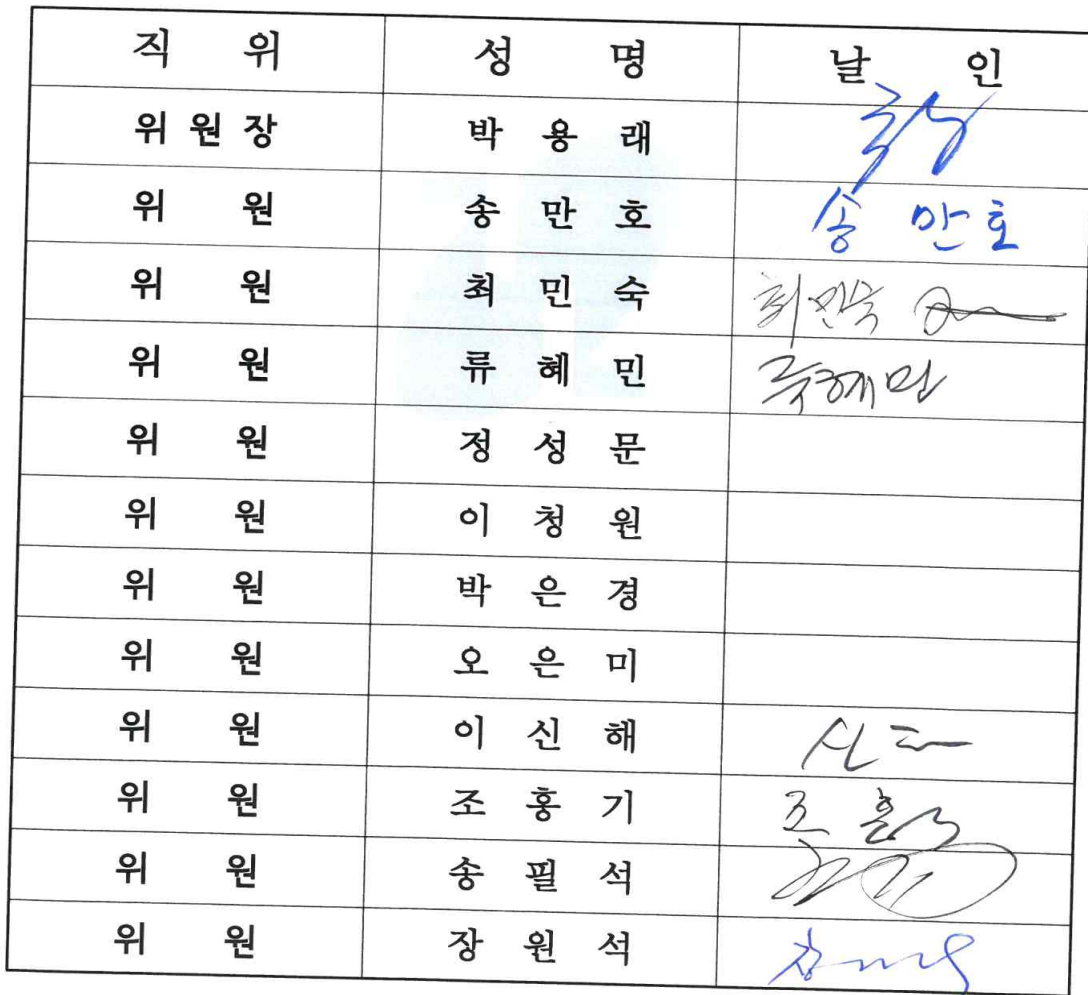 직 위 성 명 날 인
위 원 장 박 용 래
위 원 송 만 호 송 만호
위 원 최 민 숙 최민숙
위 원 류 혜 민 류혜민
위 원 정 성 문
위 원 이 청 원
위 원 박 은 경
위 원 오 은 미
위 원 이 신 해
위 원 조 홍 기 조
위 원 송 필 석
위 원 장 원 석